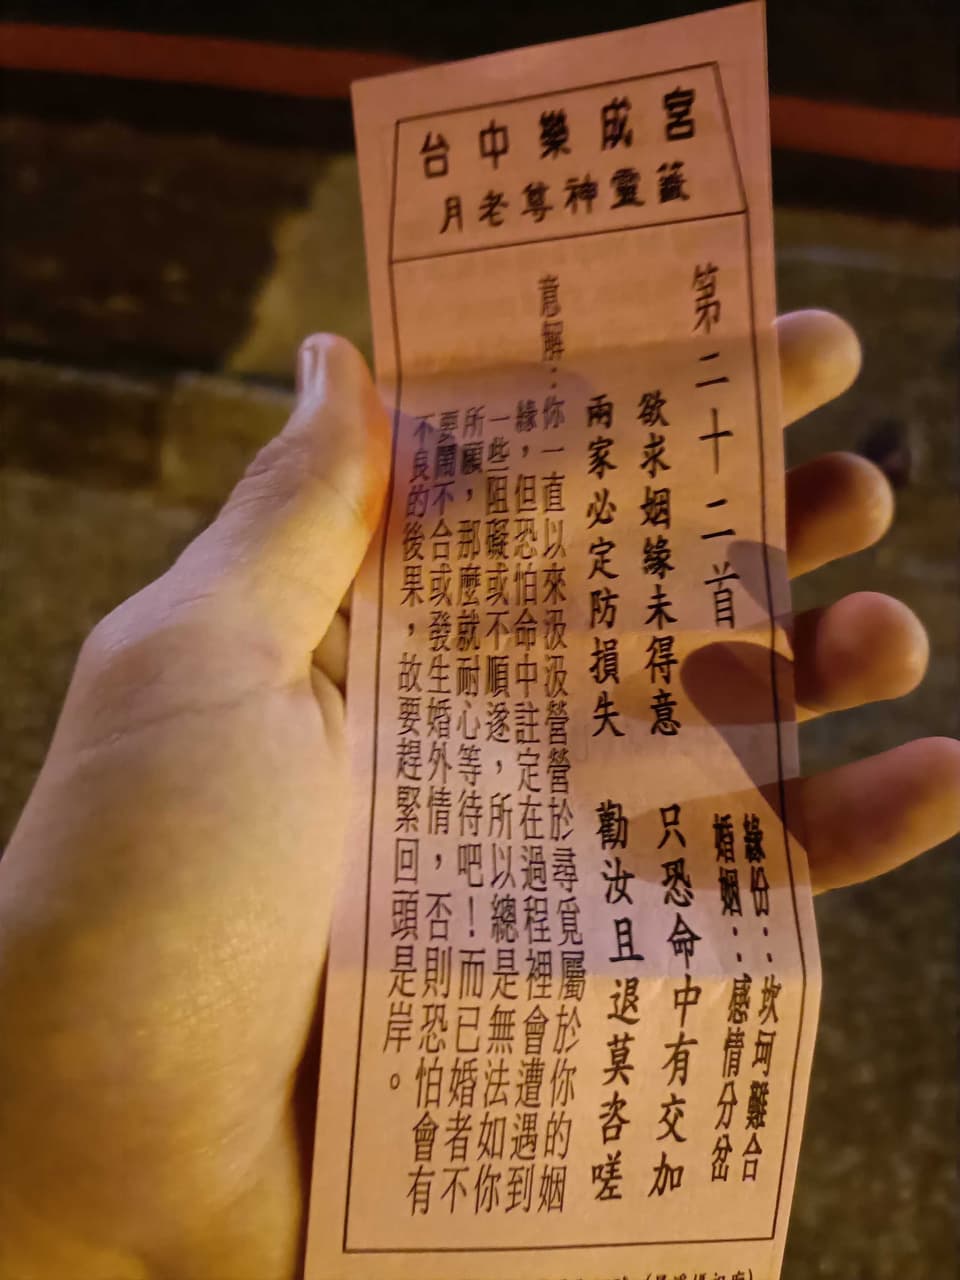 台中樂成宮
月老尊神靈籤
第二十二首
緣份：坎坷難合
婚姻：感情分岔
欲求姻緣未得意 只恐命中有交加
兩家必定防損失 勸汝且退莫咨嗟
意解：你一直以來汲汲營營於尋覓屬於你的姻
緣，但恐怕命中註定在過程裡會遭遇到
一些阻礙或不順遂，所以總是無法如你
所願，那麼就耐心等待吧！而已婚者不
要鬧不合或發生婚外情，否則恐怕會有
不良的後果，故要趕緊回頭是岸。